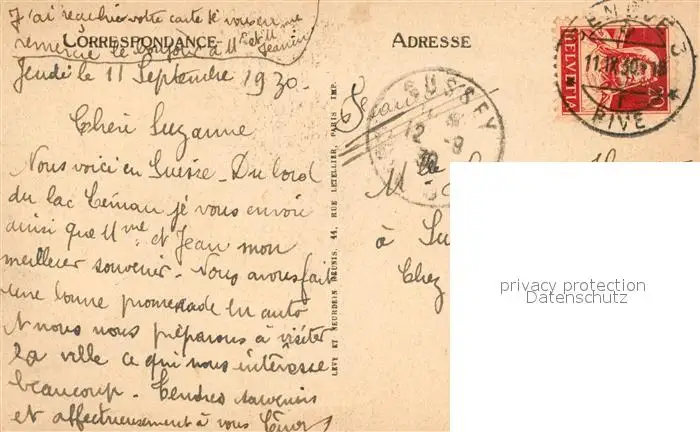 J'ai reçu hier votre carte je vous en
remercie
CORRESPONDANCE
ADRESSE
Jeudi le 11 Septembre 1930.
Cheri Suzanne
Nous voici en Suisse. Du bord
du lac Léman je vous envoie
ainsi que Mme et Jean mon
meilleur souvenir. Nous avons fait
une bonne promenade en auto
Nous nous préparons à visiter
la ville ce qui nous intéresse
beaucoup. Tendres souvenirs
et affectueusement à vous
LEVY ET NEURDEIN REUNIS, 44, RUE LETELLIER, PARIS IMP.
SUSSEY
12 -9
30
Mlle
à Su
Chez
HELVETIA
20
11.IX.30
RIVE
privacy protection
Datenschutz